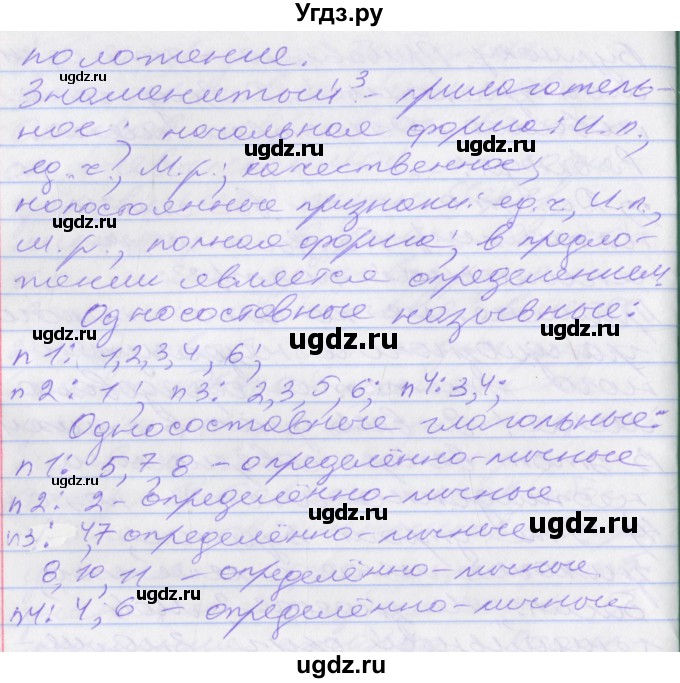 Угдз.ру
положение.
Знаменитый³ - прилагатель-
ное; начальная форма: И.п.,
ед.ч., М.р.; качественное,
непостоянные признаки: ед.ч, И.п.,
м.р., полная форма; в предло-
жении является определением.
Односоставные назывные:
п1: 1,2,3,4,6;
п2: 1; п3: 2,3,5,6; п4: 3,4;
Односоставные глагольные:
п1: 5,7,8 - определённо-личные
п2: 2 - определённо-личные
п3: 4,7 определённо-личные
8,10,11 - определённо-личные.
п4: 4,6 - определённо-личные
ugdz.ru
ugdz.ru
ugdz.ru
ugdz.ru
ugdz.ru
ugdz.ru
ugdz.ru
ugdz.ru
ugdz.ru
ugdz.ru
ugdz.ru
ugdz.ru
ugdz.ru
ugdz.ru